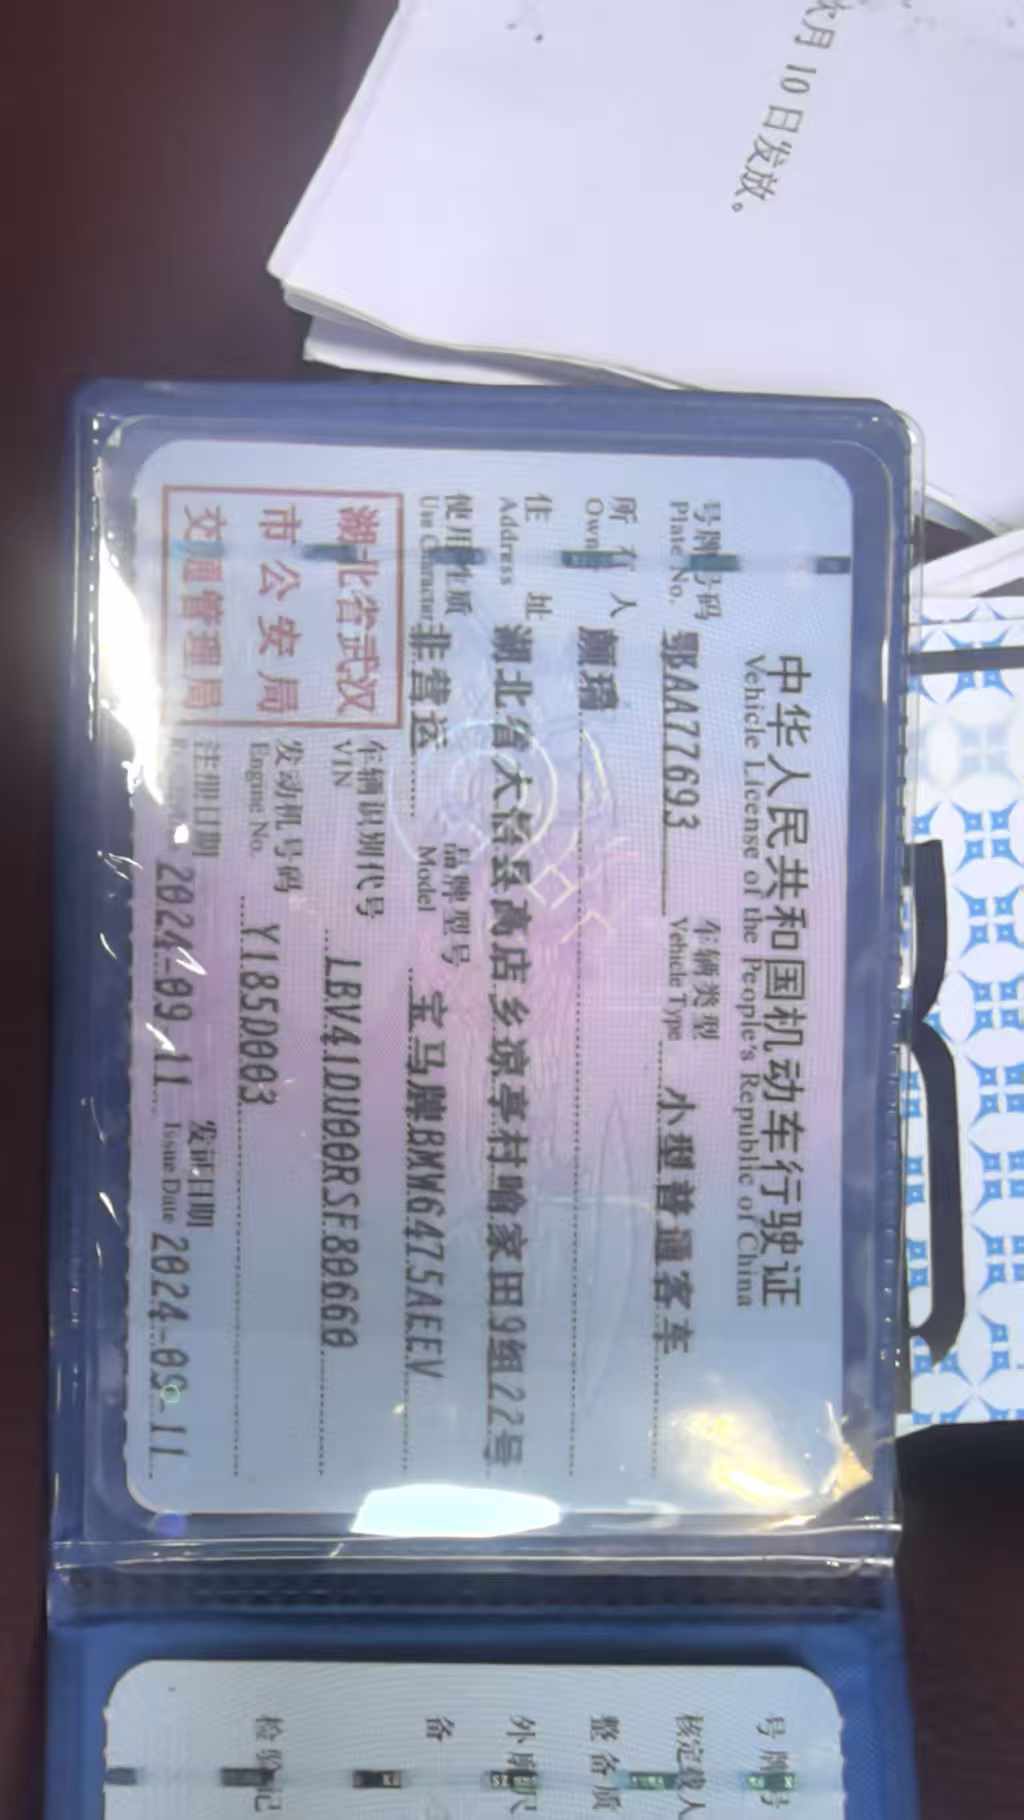 月10日发放。
中华人民共和国机动车行驶证
Vehicle License of the People's Republic of China
号牌号码 鄂AA77693 车辆类型 小型普通客车
Plate No. Vehicle Type
所有人 颜瑠
Owner
住址 湖北省大悟县高店乡凉亭村喻家田9组22号
Address
使用性质 非营运 品牌型号 宝马牌BMW6475AEEV
Use Character Model
湖北省武汉
市公安局
交通管理局
车辆识别代号 LBV41DU00RSF80660
VIN
发动机号码 Y185D003
Engine No.
注册日期 2024-09-11 发证日期 2024-09-11
Issue Date
号牌号
核定载人
整备质
外廓尺
备
检验记